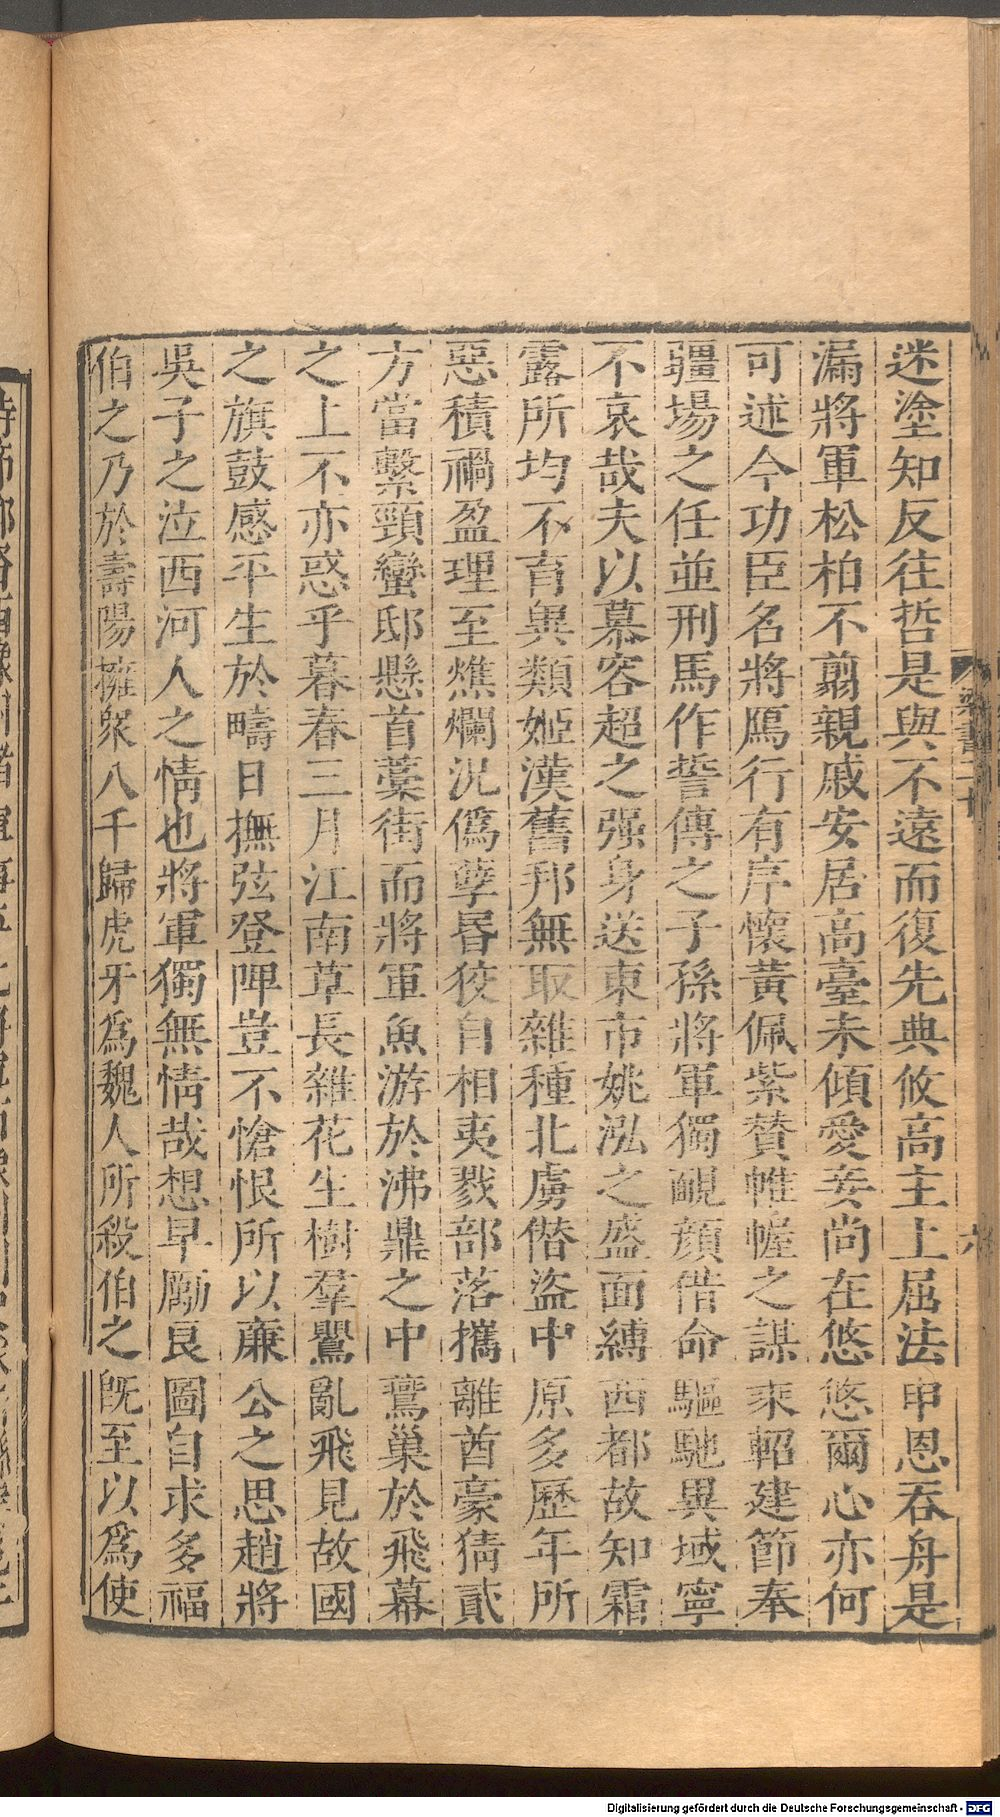 迷塗知反往哲是與不遠而復先典攸高主上屈法申恩吞舟是
漏將軍松柏不翦親戚安居高臺未傾愛妾尚在悠悠爾心亦何
可述今功臣名將鴈行有序懷黃佩紫贊帷幄之謀乘軺建節奉
疆場之任並刑馬作誓傳之子孫將軍獨靦顏借命驅馳異域寧
不哀哉夫以慕容超之强身送東市姚泓之盛面縛西都故知霜
露所均不育異類姬漢舊邦無取雜種北虜僭盜中原多歷年所
惡積禍盈理至燋爛況僞孽昬狡自相夷戮部落攜離酋豪猜貳
方當繫頸蠻邸懸首藁街而將軍魚游於沸鼎之中鷰巢於飛幕
之上不亦惑乎暮春三月江南草長雜花生樹羣鸎亂飛見故國
之旗鼓感平生於疇日撫弦登陴豈不愴悢所以廉公之思趙將
吳子之泣西河人之情也將軍獨無情哉想早勵良圖自求多福
伯之乃於壽陽擁眾八千歸虎牙爲魏人所殺伯之旣至以爲使
梁書二十
六
Digitalisierung gefördert durch die Deutsche Forschungsgemeinschaft - DFG